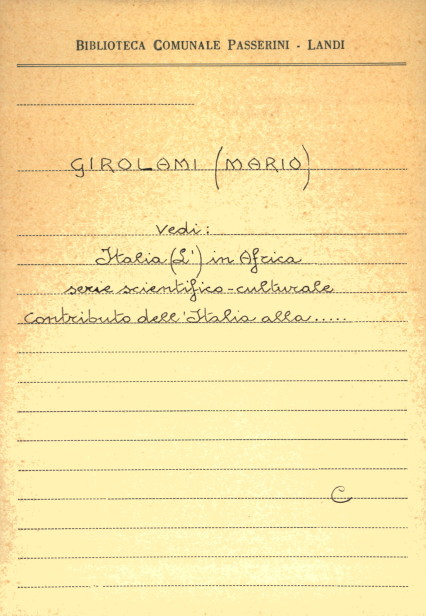 BIBLIOTECA COMUNALE PASSERINI - LANDI
GIROLAMI (MARIO)
vedi:
Italia (L') in Africa
serie scientifico-culturale
Contributo dell'Italia alla.....
C